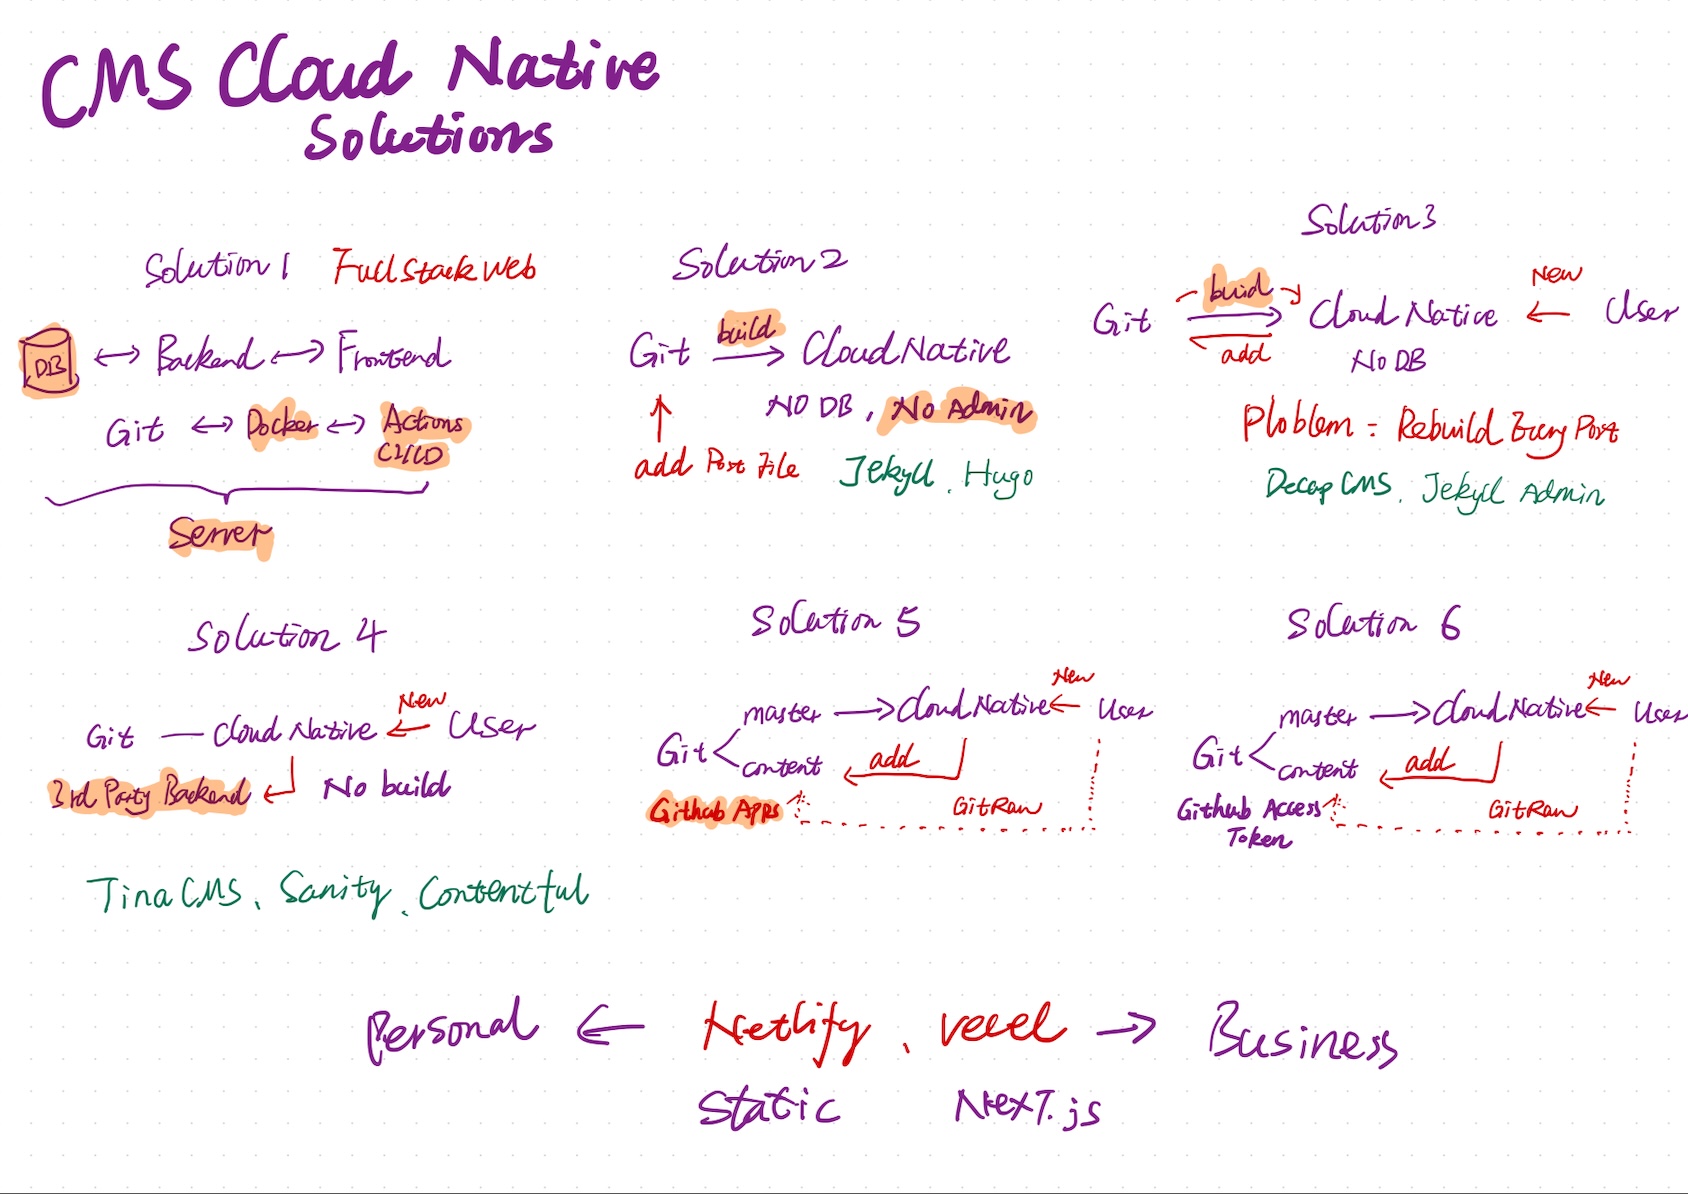 CMS Cloud Native
Solutions
Solution 1 Full stack web
DB Backend Frontend
Git Docker Actions
CI/CD
Server
Solution 2
build
Git Cloud Native
NO DB, No Admin
add Post File
Jekyll、Hugo
Solution 3
New
buid
Git Cloud Native User
add
No DB
Ploblem = Rebuild Every Post
Decap CMS、Jekyll Admin
Solution 4
New
Git Cloud Native User
3rd Party Backend No build
Tina CMS、Sanity、Contentful
Solution 5
New
master Cloud Native User
Git
content add
Github Apps GitRaw
Solution 6
New
master Cloud Native User
Git
content add
Github Access GitRaw
Token
Personal Netlify、vercel Business
Static Next.js